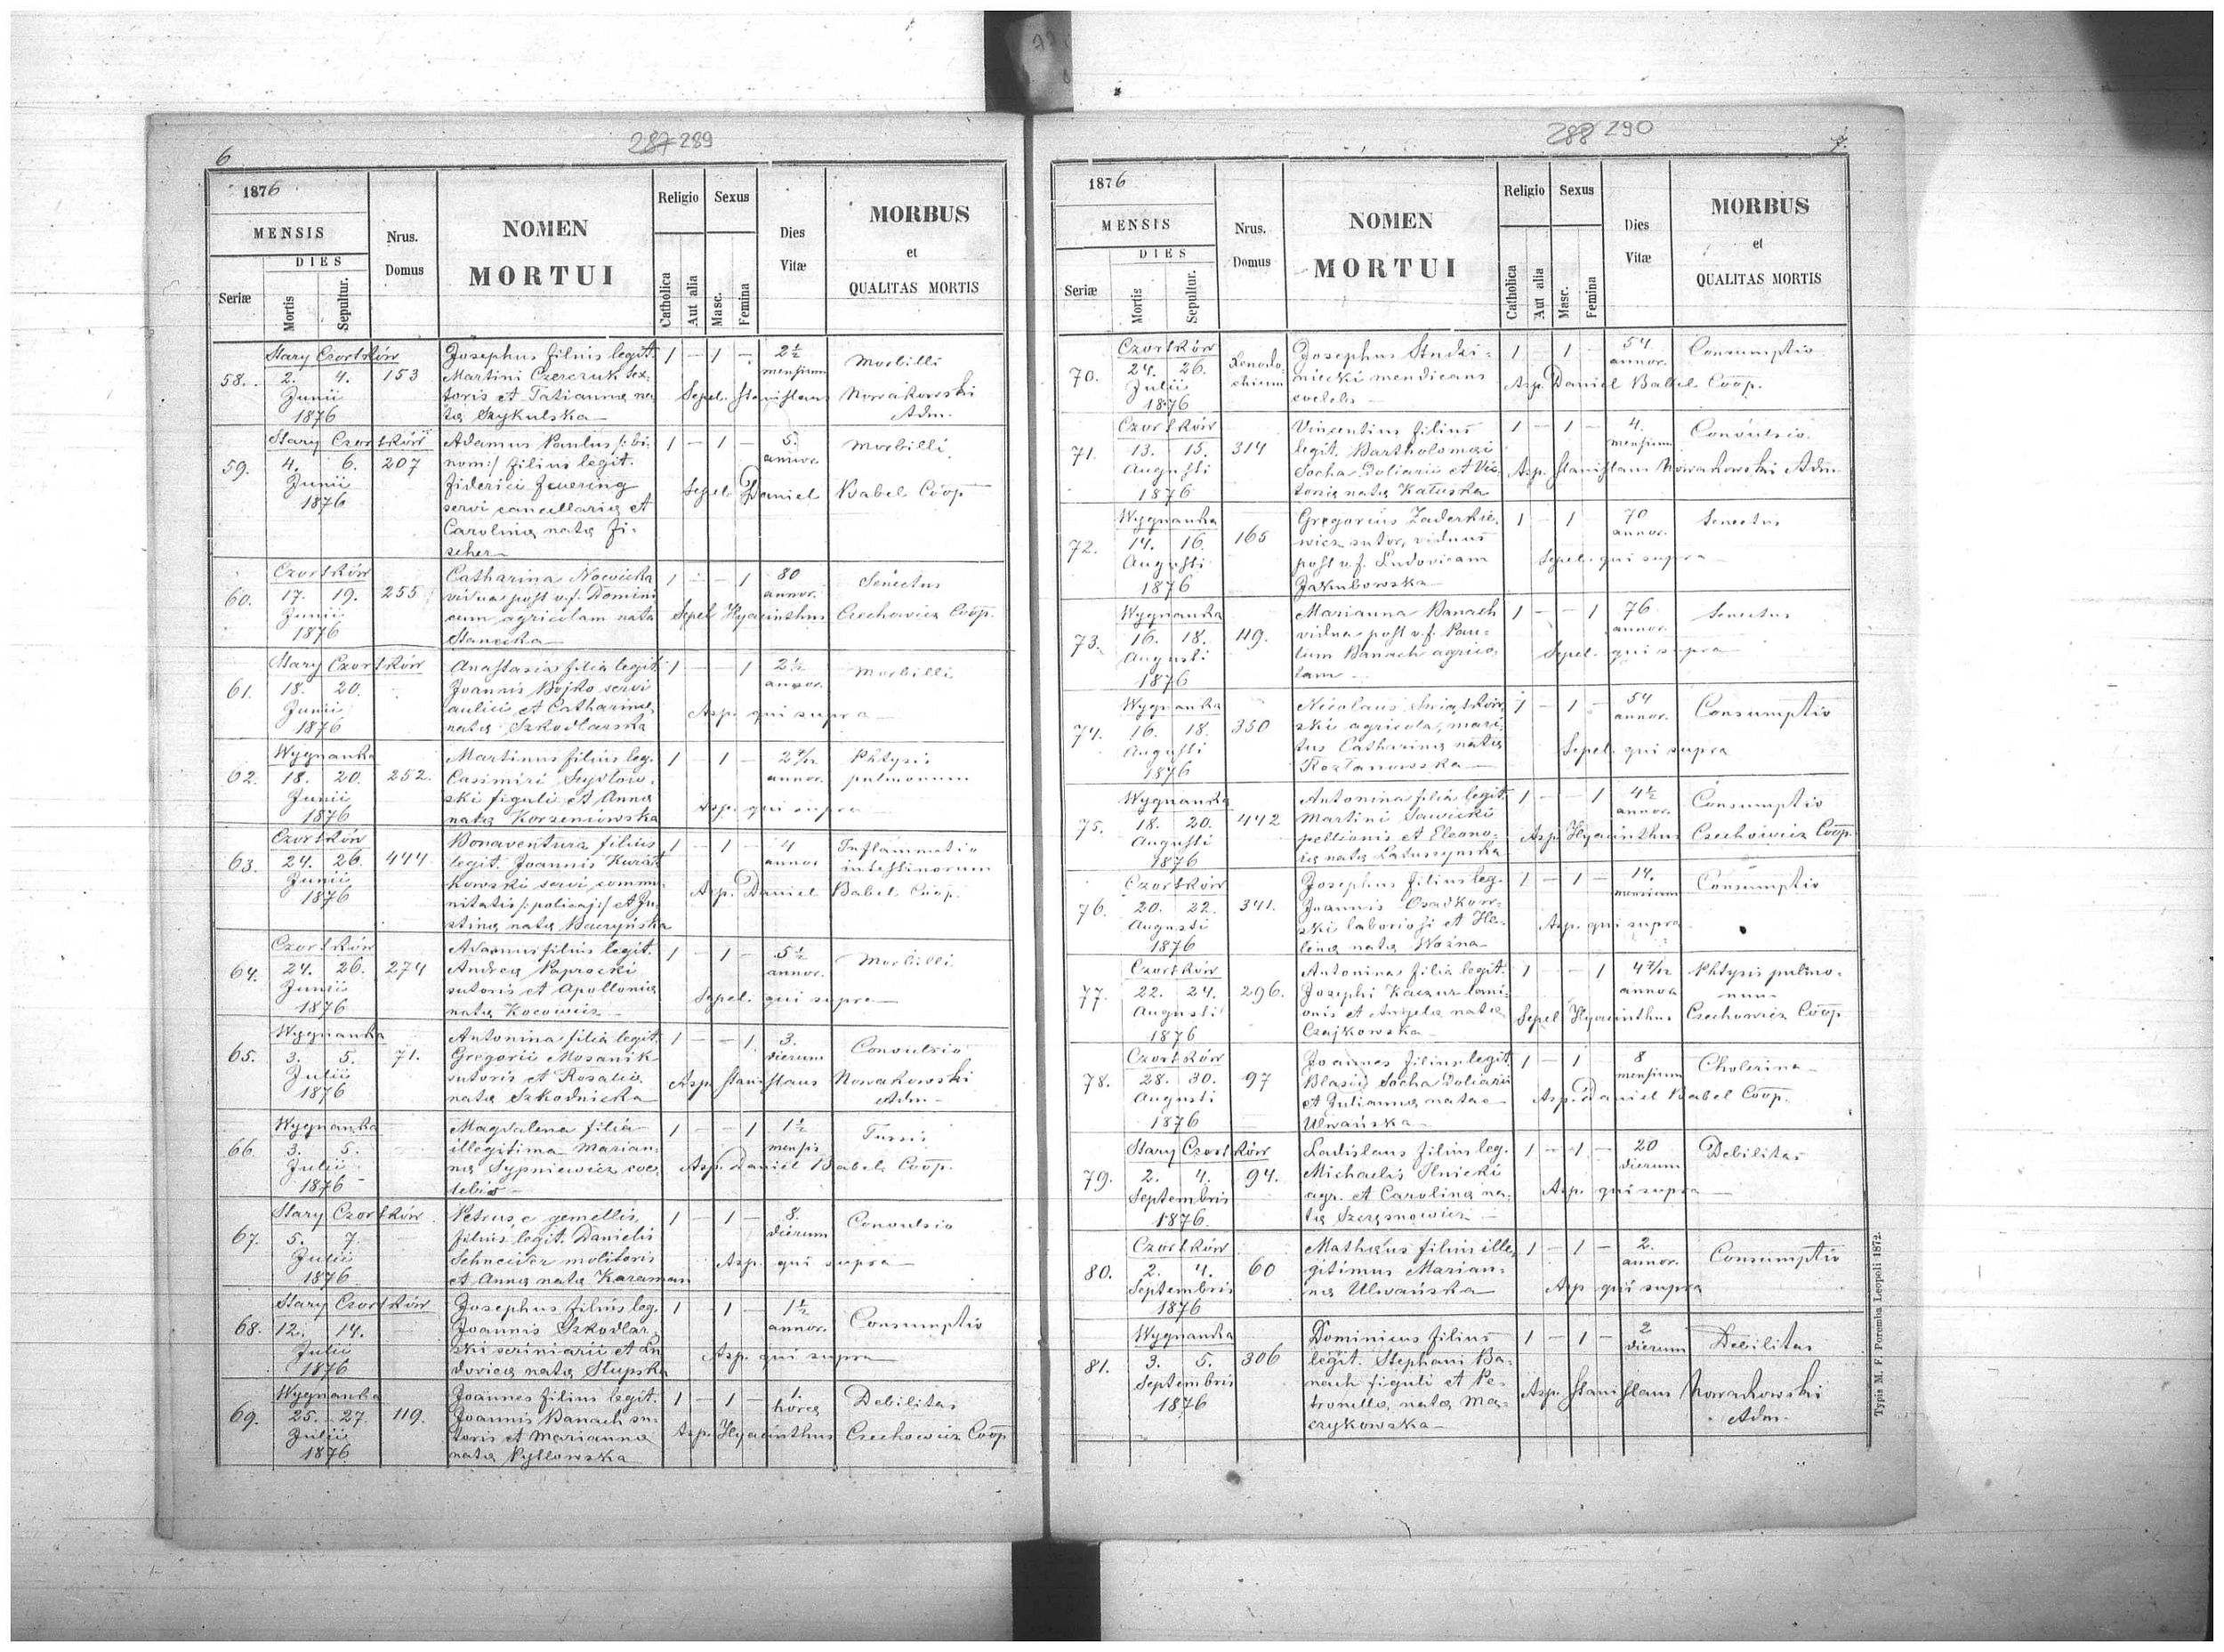 6
287 289
1876
MENSIS
DIES
Seriæ
Mortis
Sepultur.
Nrus.
Domus
NOMEN
MORTUI
Religio
Sexus
Catholica
Aut alia
Masc.
Femina
Dies
Vitæ
MORBUS
et
QUALITAS MORTIS
Stary Czortków
58. 2. 4. 153
Junii
1876
Josephus filius legit.
Martini Czerczuk tex-
toris et Tatianna na
ta Szykulska
1 - 1 - 2½
mensium
Morbilli
Sepel. Stanislaus Nowakowski
Adm.
Stary Czortków
59. 4. 6. 207
Junii
1876
Adamus Paulus /: bi-
nom:/ filius legit.
Fiderici Feuering
servi cancellariæ et
Carolina nata Fi-
scher
1 - 1 - 5.
annor.
Morbilli
Sepel. Daniel Babel Coop
Czortków
60. 17. 19. 255
Junii
1876
Catharina Nowicka
vidua post v.f. Domini
cum agricolam nata
Stanecka
1 - - 1 80
annor.
Senectus
Sepel Hyacinthus Czechowicz Coop.
Stary Czortków
61. 18. 20.
Junii
1876
Anastasia filia legit.
Joannis Bojko servi
aulici et Catharina
nata Szkodlarska
1 - - 1 2½
annor.
Morbilli
Asp. qui supra
Wygnanka
62. 18. 20. 252.
Junii
1876
Martinus filius leg.
Casimiri Szydlow-
ski figuli et Anna
nata Korzeniowska
1 - 1 - 2 4/12
annor.
Phtysis
pulmonum
Asp. qui supra
Czortków
63. 24. 26. 444
Junii
1876
Bonaventura filius
legit. Joannis Kwiat
kowski servi commu
nitatis /: policaj:/ et Ju-
stina nata Baczyńska
1 - 1 - 4
annor
Inflammatio
intestinorum
Asp. Daniel Babel Coop.
Czortków
64. 24. 26. 274
Junii
1876
Adamus filius legit.
Andrea Paprocki
sutoris et Apollonia
nata Kocowicz
1 - 1 - 5½
annor.
Morbilli
Sepel. qui supra
Wygnanka
65. 3. 5. 71.
Julii
1876
Antonina filia legit.
Gregorii Mosanik
sutoris et Rosalia
nata Szkodnicka
1 - - 1 3.
dierum
Convulsio
Asp. Stanislaus Nowakowski
Adm.
Wygnanka
66. 3. 5.
Julii
1876
Magdalena filia
illegitima Marian-
na Sypniewicz coe-
lebis
1 - - 1 1½
mensis
Tussis
Asp. Daniel Babel Coop.
Stary Czortków
67. 5. 7.
Julii
1876
Petrus e gemellis,
filius legit. Danielis
Schneider molitoris
et Anna nata Karaman
1 - 1 - 8.
dierum
Convulsio
Asp. qui supra
Stary Czortków
68. 12. 14.
Julii
1876
Josephus filius leg.
Joannis Szkodlar
ski scriniarii et Lu
dovica nata Słupska
1 - 1 - 1½
annor.
Consumptio
Asp. qui supra
Wygnanka
69. 25. 27. 119.
Julii
1876
Joannes filius legit.
Joannis Banach su-
toris et Marianna
nata Pytlowska
1 - 1 - 1
hora
Debilitas
Asp. Hyacinthus Czechowicz Coop
288 290
7.
1876
MENSIS
DIES
Seriæ
Mortis
Sepultur.
Nrus.
Domus
NOMEN
MORTUI
Religio
Sexus
Catholica
Aut alia
Masc.
Femina
Dies
Vitæ
MORBUS
et
QUALITAS MORTIS
Czortków
70. 24. 26. Xenodo-
chium
Julii
1876
Josephus Studzi-
niecki mendicans
coelebs
1 - 1 - 54
annor.
Consumptio
Asp. Daniel Babel Coop.
Czortków
71. 13. 15. 314
Augusti
1876
Vincentius filius
legit. Bartholomæi
Socha doliarii et Vic-
toria nata Katuska
1 - 1 - 4.
mensium
Convulsio.
Asp. Stanislaus Nowakowski Adm
Wygnanka
72. 14. 16. 165
Augusti
1876
Gregorius Zaderkie-
wicz sutor, viduus
post v.f. Ludovicam
Jakubowska
1 - 1 70
annor.
Senectus
Sepel. qui supra
Wygnanka
73. 16. 18. 119.
Augusti
1876
Marianna Banach
vidua post v.f. Pau-
lum Banach agrico-
lam
1 - - 1 76
annor.
Senectus
Sepel. qui supra
Wygnanka
74. 16. 18. 350
Augusti
1876
Nicolaus Świątkow-
ski agricola, mari-
tus Catharina nata
Kozłanowska
1 - 1 - 54
annor.
Consumptio
Sepel. qui supra
Wygnanka
75. 18. 20. 442
Augusti
1876
Antonina filia legit.
Martini Sawicki
pellionis et Eleono-
ra nata Latuszynska
1 - - 1 4½
annor.
Consumptio
Asp. Hyacinthus Czechowicz Coop.
Czortków
76. 20. 22. 341.
Augusti
1876
Josephus filius leg.
Joannis Osadkow-
ski laboriosi et He-
lena nata Woźna
1 - 1 - 14.
mensium
Consumptio
Asp. qui supra
Czortków
77. 22. 24. 296.
Augusti
1876
Antonina filia legit.
Josephi Kaczur lani-
onis et Angela nata
Czajkowska
1 - - 1 4 4/12
annor
Phtysis pulmo-
num
Sepel Hyacinthus Czechowicz Coop
Czortków
78. 28. 30. 97
Augusti
1876
Joannes filius legit.
Blasii Socha doliarii
et Julianna natae
Ulwańska
1 - 1 8
mensium
Cholerina
Asp. Daniel Babel Coop.
Stary Czortków
79. 2. 4. 94.
Septembris
1876.
Ladislaus filius leg.
Michaelis Ilnicki
agr. et Carolina na-
ta Szerszniowicz
1 - 1 - 20
dierum
Debilitas
Asp. qui supra
Czortków
80. 2. 4. 60
Septembris
1876
Mathæus filius ille-
gitimus Marian-
na Ulwańska
1 - 1 - 2.
annor.
Consumptio
Asp qui supra
Wygnanka
81. 3. 5. 306
Septembris
1876
Dominicus filius
legit. Stephani Ba-
nach figuli et Pe-
tronella nata Ma-
czykowska
1 - 1 - 2
dierum
Debilitas
Asp. Stanislaus Nowakowski
Adm.
Typis M. F. Poremba Leopoli 1872.